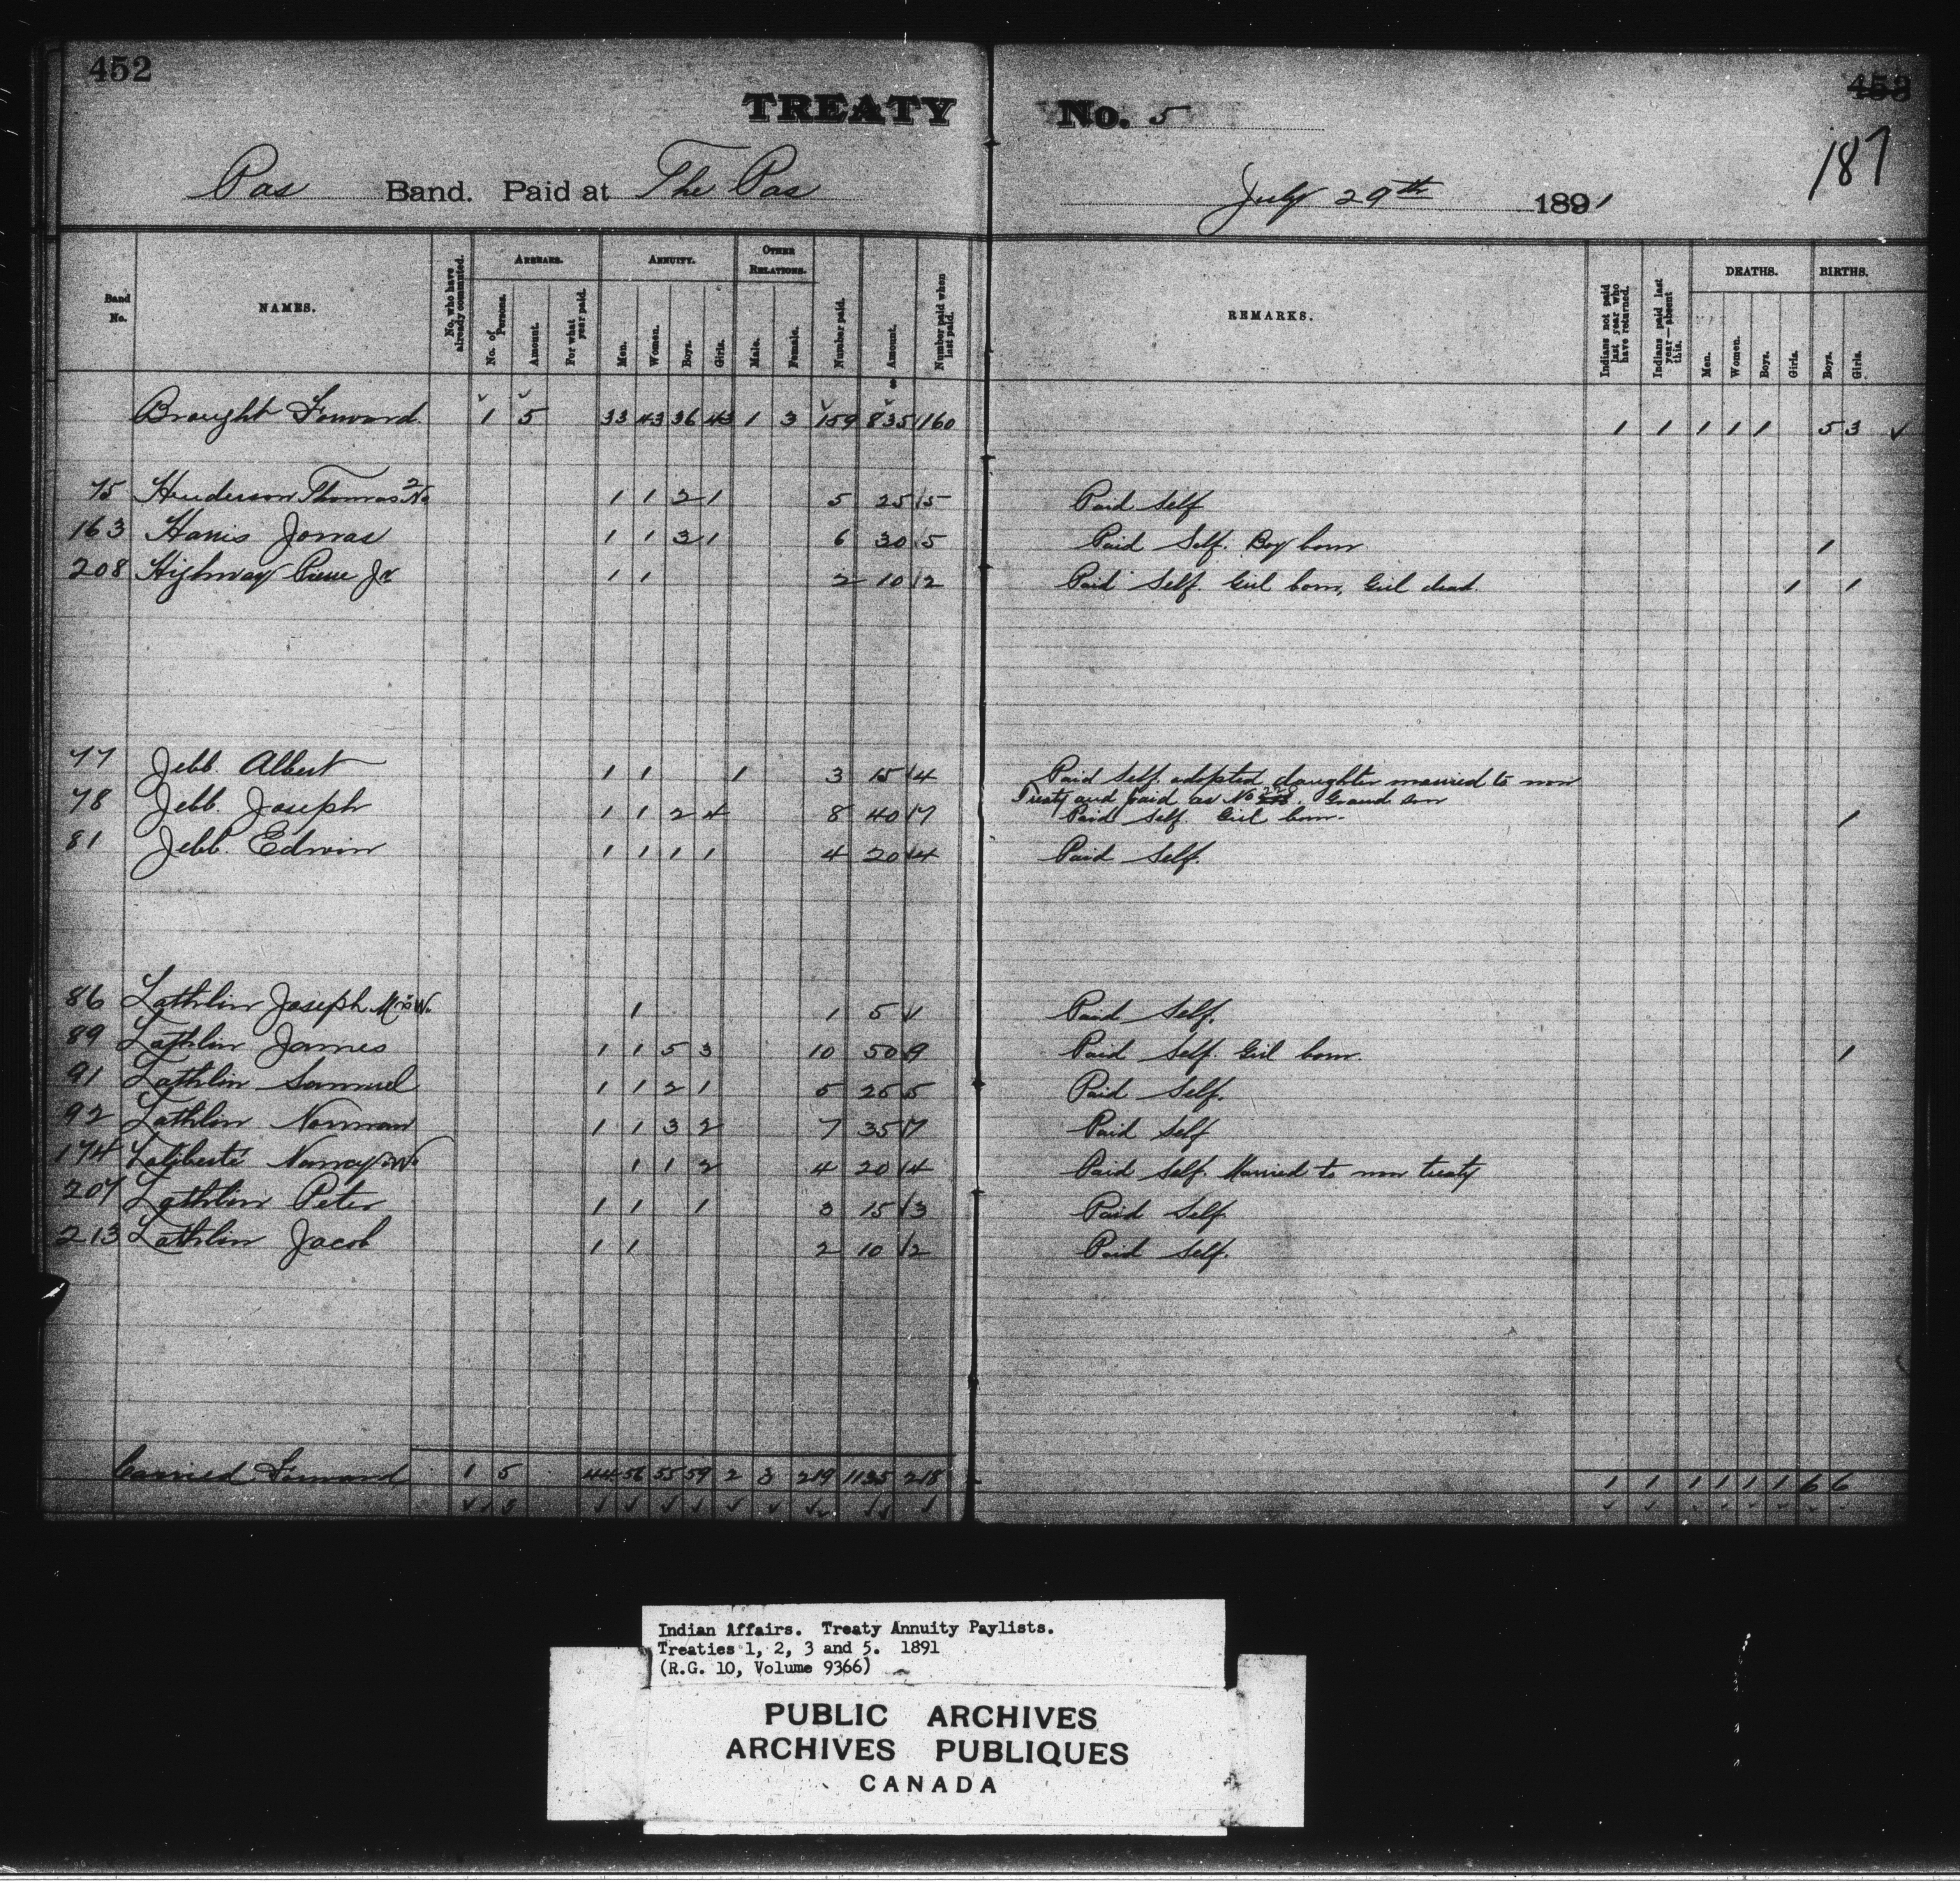 452
453
TREATY No. 5
187
Pas Band. Paid at The Pas July 29th 1891
Band No.
NAMES.
No. who have already commuted.
ARREARS.
No. of Persons.
Amount.
For what year paid.
ANNUITY.
Men.
Women.
Boys.
Girls.
OTHER RELATIONS.
Male.
Female.
Number paid.
Amount.
Number paid when last paid.
REMARKS.
Indians not paid last year who have returned.
Indians paid last year—absent this.
DEATHS.
Men.
Women.
Boys.
Girls.
BIRTHS.
Boys.
Girls.
Brought Forward. 1 5 33 43 36 43 1 3 159 835 160 1 1 1 1 1 5 3
75 Henderson Thomas No 2 1 1 2 1 5 25 5 Paid Self
163 Harris Jonas 1 1 3 1 6 30 5 Paid Self. Boy born 1
208 Highway Pierre Jr 1 1 2 10 2 Paid Self. Girl born, Girl dead. 1 1
77 Jebb. Albert 1 1 1 3 15 4 Paid Self. adopted daughter married to non
Treaty and paid as No 228. Grand son
78 Jebb. Joseph 1 1 2 4 8 40 7 Paid Self. Girl born. 1
81 Jebb. Edwin 1 1 1 1 4 20 4 Paid Self.
86 Lathlin Joseph Mrs W. 1 1 5 1 Paid Self.
89 Lathlin James 1 1 5 3 10 50 9 Paid Self. Girl born. 1
91 Lathlin Samuel 1 1 2 1 5 25 5 Paid Self.
92 Lathlin Norman 1 1 3 2 7 35 7 Paid Self
174 Laliberté Nancy W. 1 1 2 4 20 4 Paid Self. Married to non treaty
207 Lathlin Peter 1 1 1 3 15 3 Paid Self
213 Lathlin Jacob 1 1 2 10 2 Paid Self.
Carried Forward 1 5 44 56 55 59 2 3 219 1135 218 1 1 1 1 1 1 6 6
Indian Affairs. Treaty Annuity Paylists.
Treaties 1, 2, 3 and 5. 1891
(R.G. 10, Volume 9366)
PUBLIC ARCHIVES
ARCHIVES PUBLIQUES
CANADA